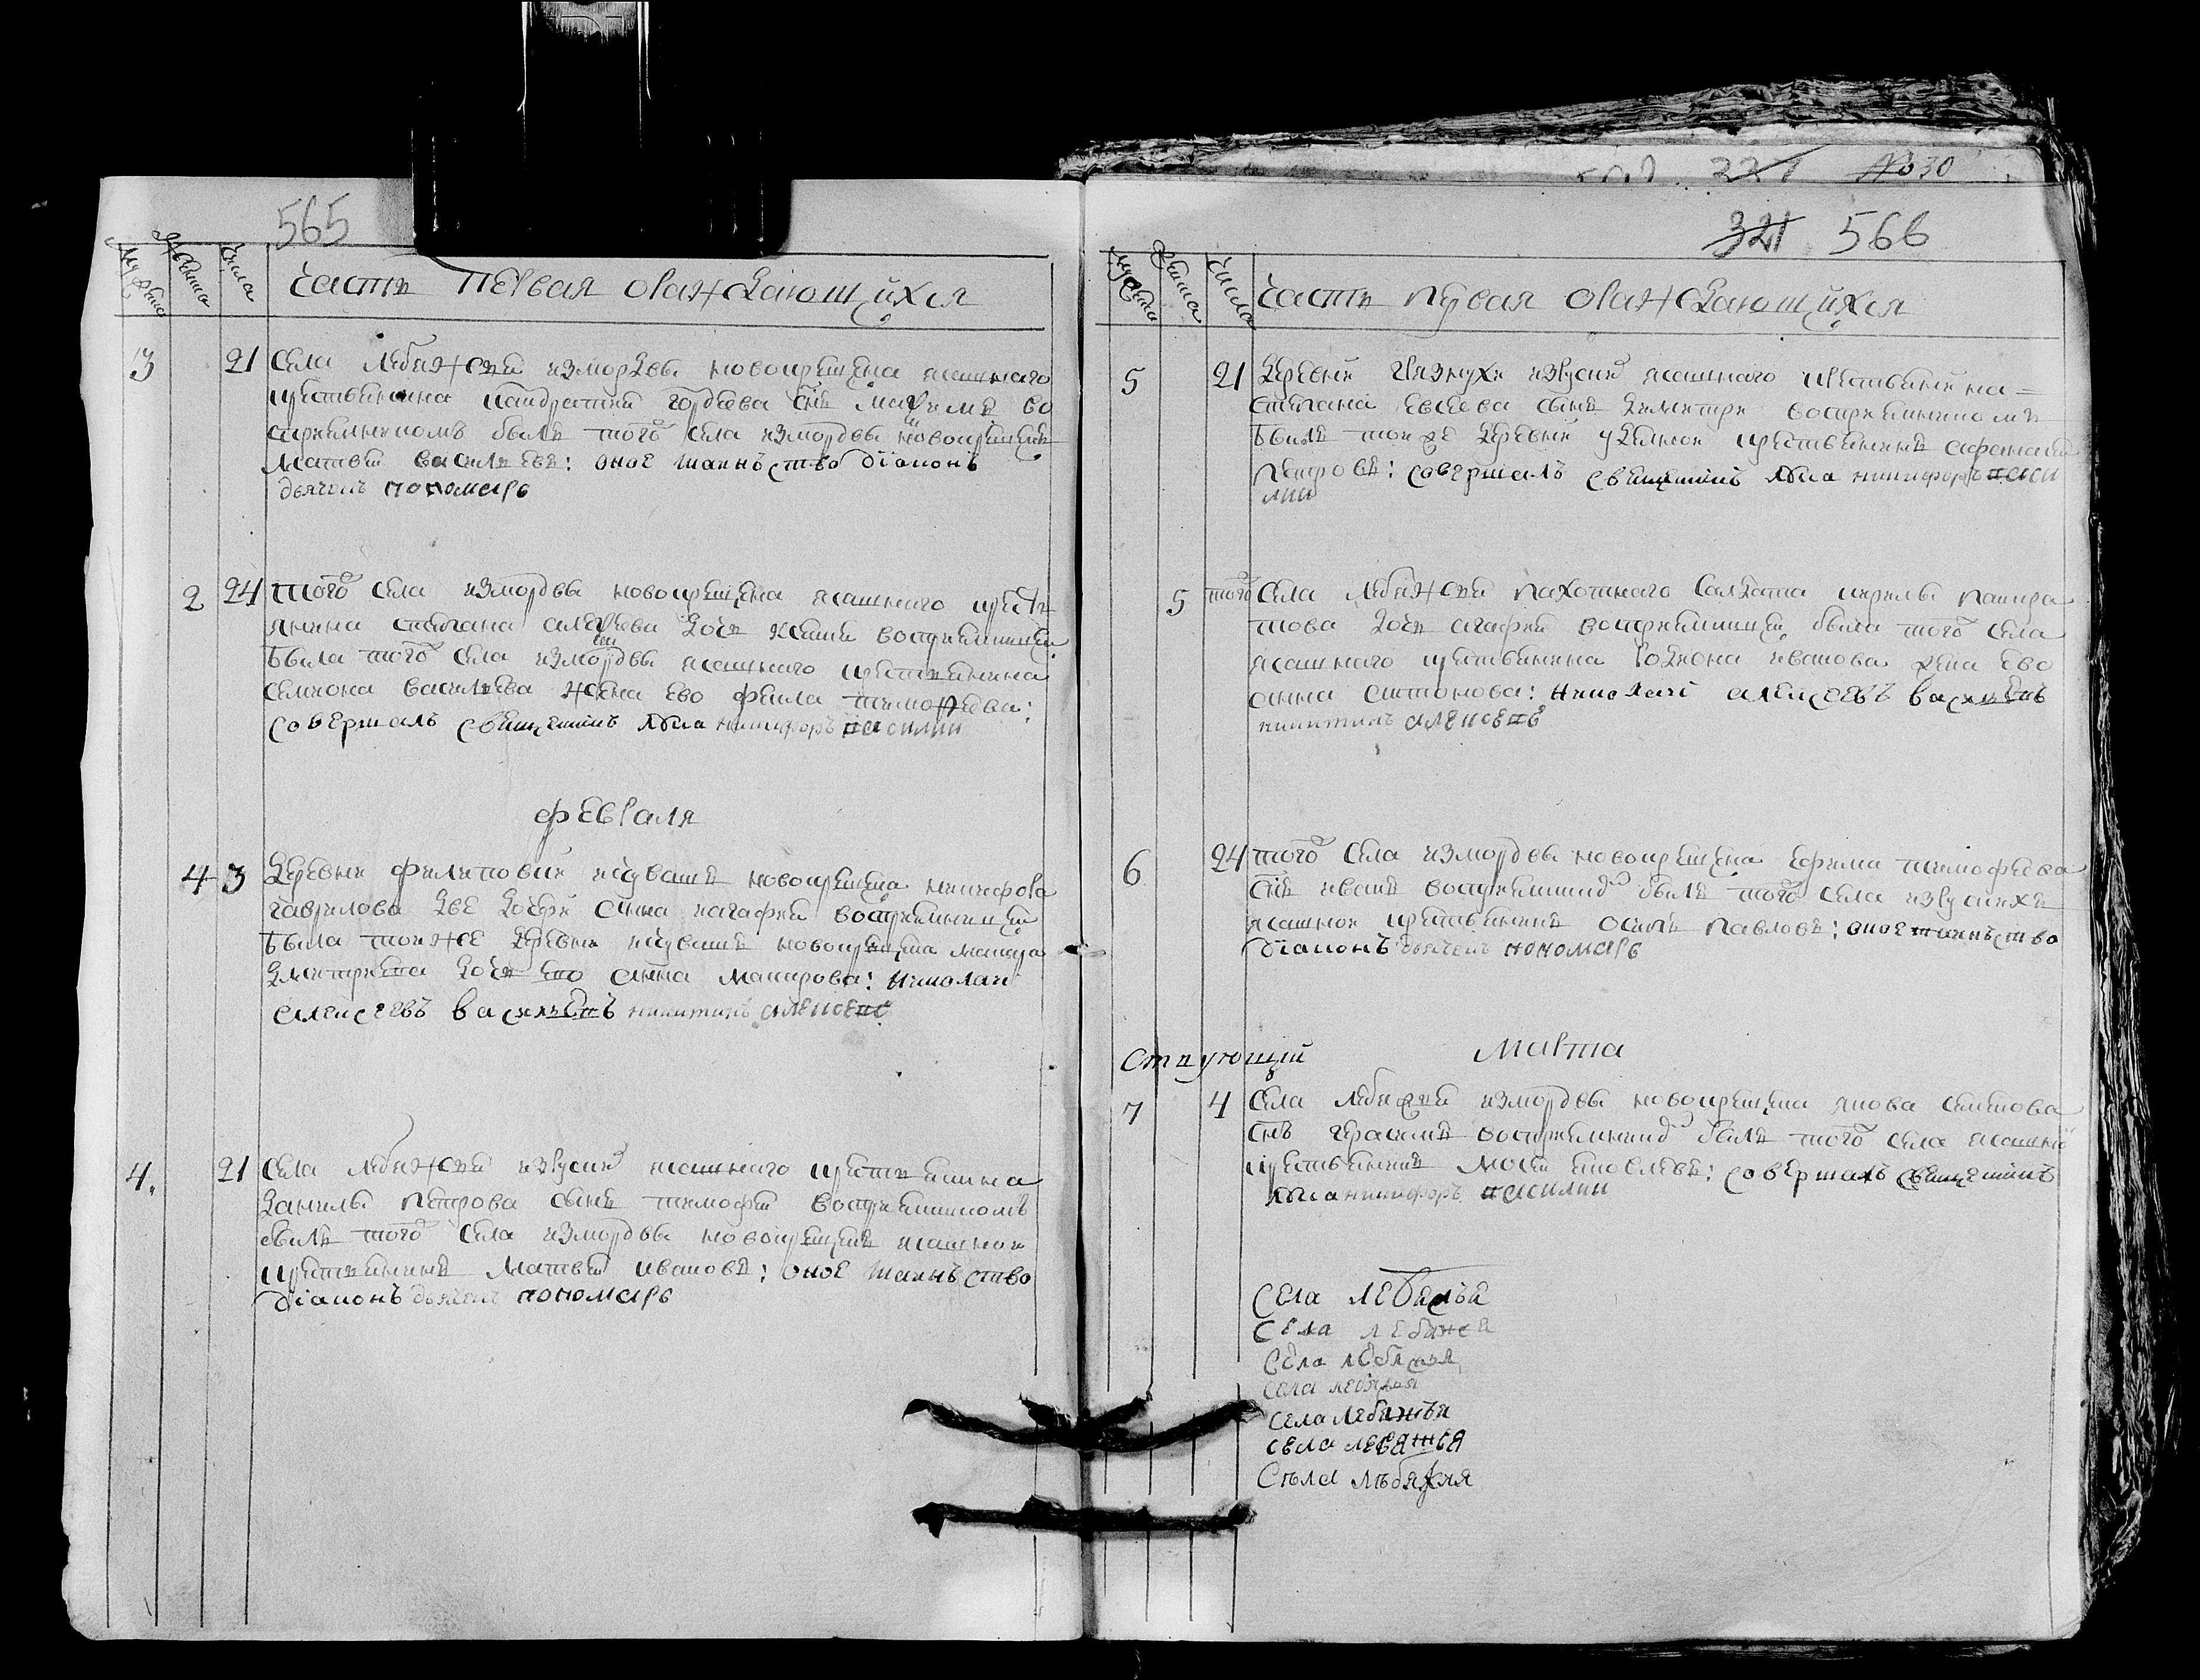 565
мужеска женска числа
часть первая ораждающихся
3 21 села лебяжей измордвы новокрещена ясашнаго
крестьянина кандратей гордеева снъ максимъ во
сприемникомъ былъ того села измордвы новокрещенъ
матвей васильевъ: оное таинъство діаконъ
дьячекъ пономарь
2 24 того села измордвы новокрещена ясашнаго кресть
янина степана алексеева дочь ксения восприемницей
была того села измордвы ясашнаго крестьянина
семиона васильева жена ево фекла тимофеева:
совершалъ священникъ никифоръ
февраля
4 3 деревни филиповки исчувашъ новокрещена никифора
гаврилова две дочери анна иагафия восприемницей
была тоиже деревни исчувашъ новокрещена макара
дмитриева дочь ево анна макарова: николаи
алексеевъ никитинъ
4. 21 села лебяжей изруских ясашнаго крестьянина
данилы петрова сынъ тимофей восприемникомъ
былъ того села измордвы новокрещенъ ясашнои
крестьянинъ матвей ивановъ: оное таинъство
діаконъ дьячекъ пономарь
221 №30
321 566
мужеска женска числа
часть первая ораждающихся
5 21 деревни грязнухи изруских ясашнаго крестьянина
степана евсеева сынъ димитри восприемникомъ
былъ тоиже деревни уделнои крестьянинъ афанасей
петровъ: совершалъ священникъ никифоръ
5 того села лебяжей пахотнаго салдата кирилы панкра
това дочь агафия восприемницей была того села
ясашнаго крестьянина родиона иванова жена ево
анна антонова: николаі алексеевъ
никитинъ
6 24 того села измордвы новокрещена ефима тимофеева
снъ иванъ восприемникъ былъ того села изруских
ясашнои крестьянинъ осипъ павловъ: оное таинъство
діаконъ дьячекъ пономарь
марта
7 4 села лебяжей измордвы новокрещена якова семенова
снъ герасимъ восприемникъ былъ того села ясашной
крестьянинъ яковлевъ: совершалъ священникъ
никифоръ
села лебяжья
села лебяжья
села лебяжья
села лебяжья
села лебяжья
села лебяжья
Съла лъбяжия